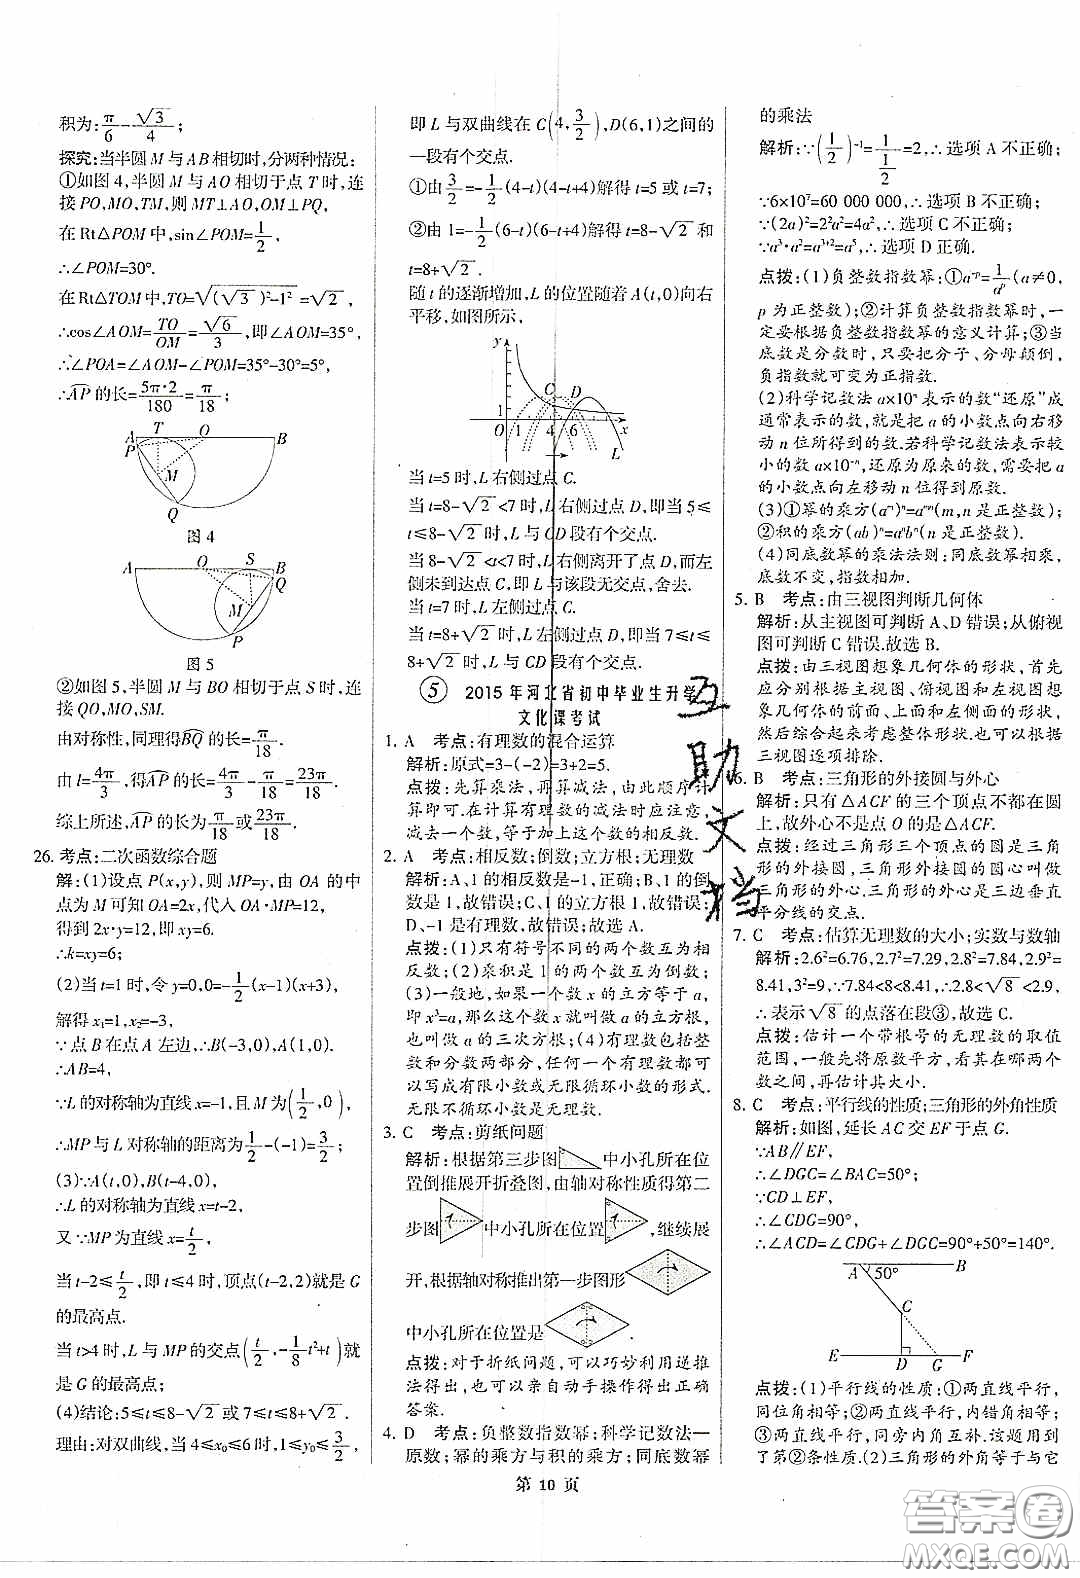 积为:π/6-√3/4；
探究:当半圆 M 与 AB 相切时,分两种情况:
①如图 4,半圆 M 与 AO 相切于点 T 时,连
接 PO,MO,TM,则 MT⊥AO,OM⊥PQ,
在 Rt△POM 中,sin∠POM=1/2,
∴∠POM=30°.
在 Rt△TOM 中,TO=√((√3)²-1²)=√2,
∴cos∠AOM=TO/OM=√6/3,即∠AOM=35°,
∴∠POA=∠AOM-∠POM=35°-30°=5°,
∴AP 的长=5π·2/180=π/18；
A T O B
P M Q
图 4
A O S B
Q M P
图 5
②如图 5,半圆 M 与 BO 相切于点 S 时,连
接 QO,MO,SM.
由对称性,同理得BQ 的长=π/18.
由 l=4π/3,得AP的长=4π/3-π/18=23π/18.
综上所述,AP 的长为π/18或23π/18.
26. 考点:二次函数综合题
解:(1)设点 P(x,y),则 MP=y,由 OA 的中
点为 M 可知 OA=2x,代入 OA·MP=12,
得到 2x·y=12,即 xy=6.
∴k=xy=6；
(2)当 t=1 时,令 y=0,0=-1/2(x-1)(x+3),
解得 x₁=1,x₂=-3,
∵点 B 在点 A 左边,∴B(-3,0),A(1,0).
∴AB=4,
∵L 的对称轴为直线 x=-1,且 M 为(1/2,0),
∴MP 与 L 对称轴的距离为1/2-(-1)=3/2；
(3)∵A(t,0),B(t-4,0),
∴L 的对称轴为直线 x=t-2,
又∵MP 为直线 x=t/2,
当 t-2≤t/2,即 t≤4 时,顶点(t-2,2)就是 G
的最高点.
当 t>4 时,L 与 MP 的交点(t/2,-1/8t²+t)就
是 G 的最高点；
(4)结论:5≤t≤8-√2 或7≤t≤8+√2.
理由:对双曲线,当 4≤x₀≤6 时,1≤y₀≤3/2,
即 L 与双曲线在 C(4,3/2),D(6,1)之间的
一段有个交点.
①由3/2=-1/2(4-t)(4-t+4)解得 t=5 或 t=7；
②由 1=-1/2(6-t)(6-t+4)解得 t=8-√2 和
t=8+√2.
随 t 的逐渐增加,L 的位置随着 A(t,0)向右
平移,如图所示,
y C D
1 O 1 4 6 x
L
当 t=5 时,L 右侧过点 C.
当 t=8-√2<7 时,L 右侧过点 D,即 5≤
t≤8-√2 时,L 与 CD 段有个交点.
当 8-√2<t<7 时,L 右侧离开了点 D,而左
侧未到达点 C,即 L 与该段无交点,舍去.
当 t=7 时,L 左侧过点 C.
当 t=8+√2 时,L 左侧过点 D,即当 7≤t≤
8+√2 时,L 与 CD 段有个交点.
⑤ 2015 年河北省初中毕业生升学
文化课考试
1. A 考点:有理数的混合运算
解析:原式=3-(-2)=3+2=5.
点拨:先算乘法,再算减法,由此顺序计
算即可.在计算有理数的减法时应注意,
减去一个数,等于加上这个数的相反数.
2. A 考点:相反数;倒数;立方根;无理数
解析:A、1 的相反数是-1,正确;B、1 的倒
数是 1,故错误;C、1 的立方根是 1,故错误;
D、-1 是有理数,故错误;故选 A.
点拨:(1)只有符号不同的两个数互为相
反数;(2)乘积是 1 的两个数互为倒数;
(3)一般地,如果一个数 x 的立方等于 a,
即 x³=a,那么这个数 x 就叫做 a 的立方根,
也叫做 a 的三次方根;(4)有理数包括整
数和分数两部分,任何一个有理数都可
以写成有限小数或无限循环小数的形式.
无限不循环小数是无理数.
3. C 考点:剪纸问题
解析:根据第三步图 中小孔所在位
置倒推展开折叠图,由轴对称性质得第二
步图 中小孔所在位置 ,继续展
开,根据轴对称推出第一步图形
中小孔所在位置是 .
点拨:对于折纸问题,可以巧妙利用逆推
法得出,也可以亲自动手操作得出正确
答案.
4. D 考点:负整数指数幂;科学记数法—
原数;幂的乘方与积的乘方;同底数幂
的乘法
解析:∵(1/2)⁻¹=1/(1/2)=2,∴选项 A 不正确;
∵6×10⁷=60 000 000,∴选项 B 不正确;
∵(2a)²=2²a²=4a²,∴选项 C 不正确;
∵a³·a²=a³⁺²=a⁵,∴选项 D 正确.
点拨:(1)负整数指数幂:①a⁻ᵖ=1/aᵖ(a≠0,
p 为正整数);②计算负整数指数幂时,一
定要根据负整数指数幂的意义计算;③当
底数是分数时,只要把分子、分母颠倒,
负指数就可变为正指数.
(2)科学记数法 a×10ⁿ 表示的数“还原”成
通常表示的数,就是把 a 的小数点向右移
动 n 位所得到的数.若科学记数法表示较
小的数 a×10⁻ⁿ,还原为原来的数,需要把 a
的小数点向左移动 n 位得到原数.
(3)①幂的乘方(aᵐ)ⁿ=aᵐⁿ(m,n 是正整数);
②积的乘方(ab)ⁿ=aⁿbⁿ(n 是正整数).
(4)同底数幂的乘法法则:同底数幂相乘,
底数不变,指数相加.
5. B 考点:由三视图判断几何体
解析:从主视图可判断 A、D 错误;从俯视
图可判断 C 错误.故选 B.
点拨:由三视图想象几何体的形状,首先
应分别根据主视图、俯视图和左视图想
象几何体的前面、上面和左侧面的形状,
然后综合起来考虑整体形状,也可根据
三视图逐项排除.
6. B 考点:三角形的外接圆与外心
解析:只有△ACF 的三个顶点不都在圆
上,故外心不是点 O 的是△ACF.
点拨:经过三角形三个顶点的圆是三角
形的外接圆,三角形外接圆的圆心叫做
三角形的外心,三角形外心是三边垂直
平分线的交点.
7. C 考点:估算无理数的大小;实数与数轴
解析:2.6²=6.76,2.7²=7.29,2.8²=7.84,2.9²=
8.41,3²=9,∴7.84<8<8.41,∴2.8<√8<2.9,
∴表示√8的点落在段③,故选 C.
点拨:估计一个带根号的无理数的取值
范围,一般先将原数平方,看其在哪两个
数之间,再估计其大小.
8. C 考点:平行线的性质;三角形的外角性质
解析:如图,延长 AC 交 EF 于点 G.
∵AB∥EF,
∴∠DGC=∠BAC=50°;
∵CD⊥EF,
∴∠CDG=90°,
∴∠ACD=∠CDG+∠DGC=90°+50°=140°.
A 50° B
C
E D G F
点拨:(1)平行线的性质:①两直线平行,
同位角相等,②两直线平行,内错角相等,
③两直线平行,同旁内角互补.本题用到
了第②条性质.(2)三角形的外角等于与它
互助文档
第 10 页
答案圈
MXQE.COM